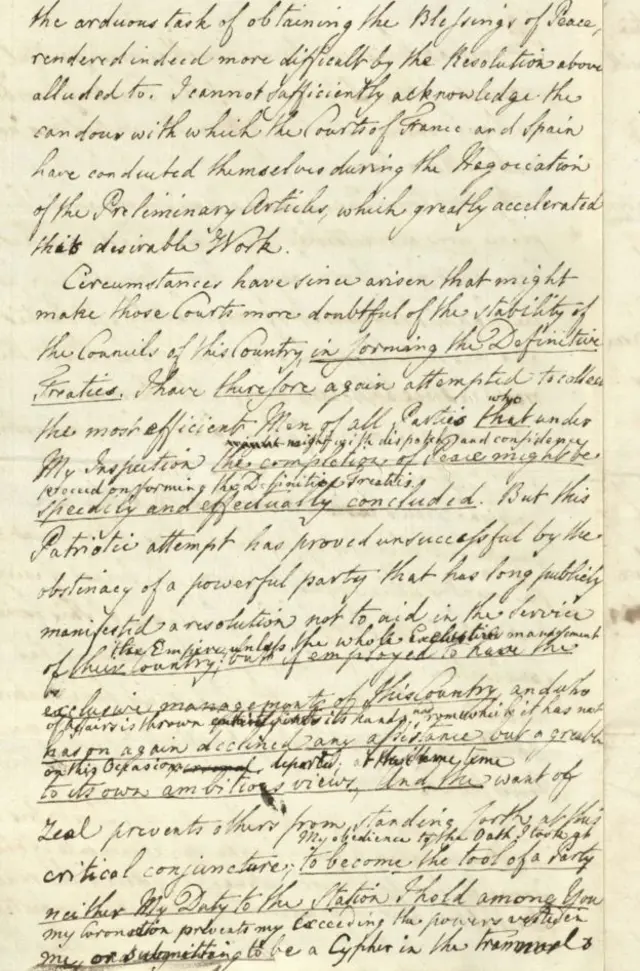 the arduous task of obtaining the Blessings of Peace,
rendered indeed more difficult by the Resolution above
alluded to. I cannot sufficiently acknowledge the
candour with which the Courts of France and Spain
have conducted themselves during the Negociation
of the Preliminary Articles, which greatly accelerated
that desirable Work.
Circumstances have since arisen that might
make those Courts more doubtful of the stability of
the Councils of this Country in forming the Definitive
Treaties. I have therefore again attempted to collect
who
the most efficient Men of all Parties that under
might with dispatch and confidence
My Inspection the completion of Peace might be
proceed on forming the Definitive Treaties
speedily and effectually concluded. But this
Patriotic attempt has proved unsuccessful by the
obstinacy of a powerful party that has long publicly
manifested a resolution not to aid in the Service
the Empire unless the whole Executive management
of their Country; but if employed to have the
exclusive management of this Country, and who
of Affairs is thrown its hands, from which it has not
has on again declined any assistance but agreable
on this Occasion departed: at the same time
to its own ambitious views, And the want of
Zeal prevents others from standing forth at this
My obedience to the Oath I took at
critical conjuncture; to become the tool of a Party
neither My Duty to the Station I hold among You
my Coronation prevents my Exceeding the powers vested in
me, or submitting to be a Cypher in the trammels